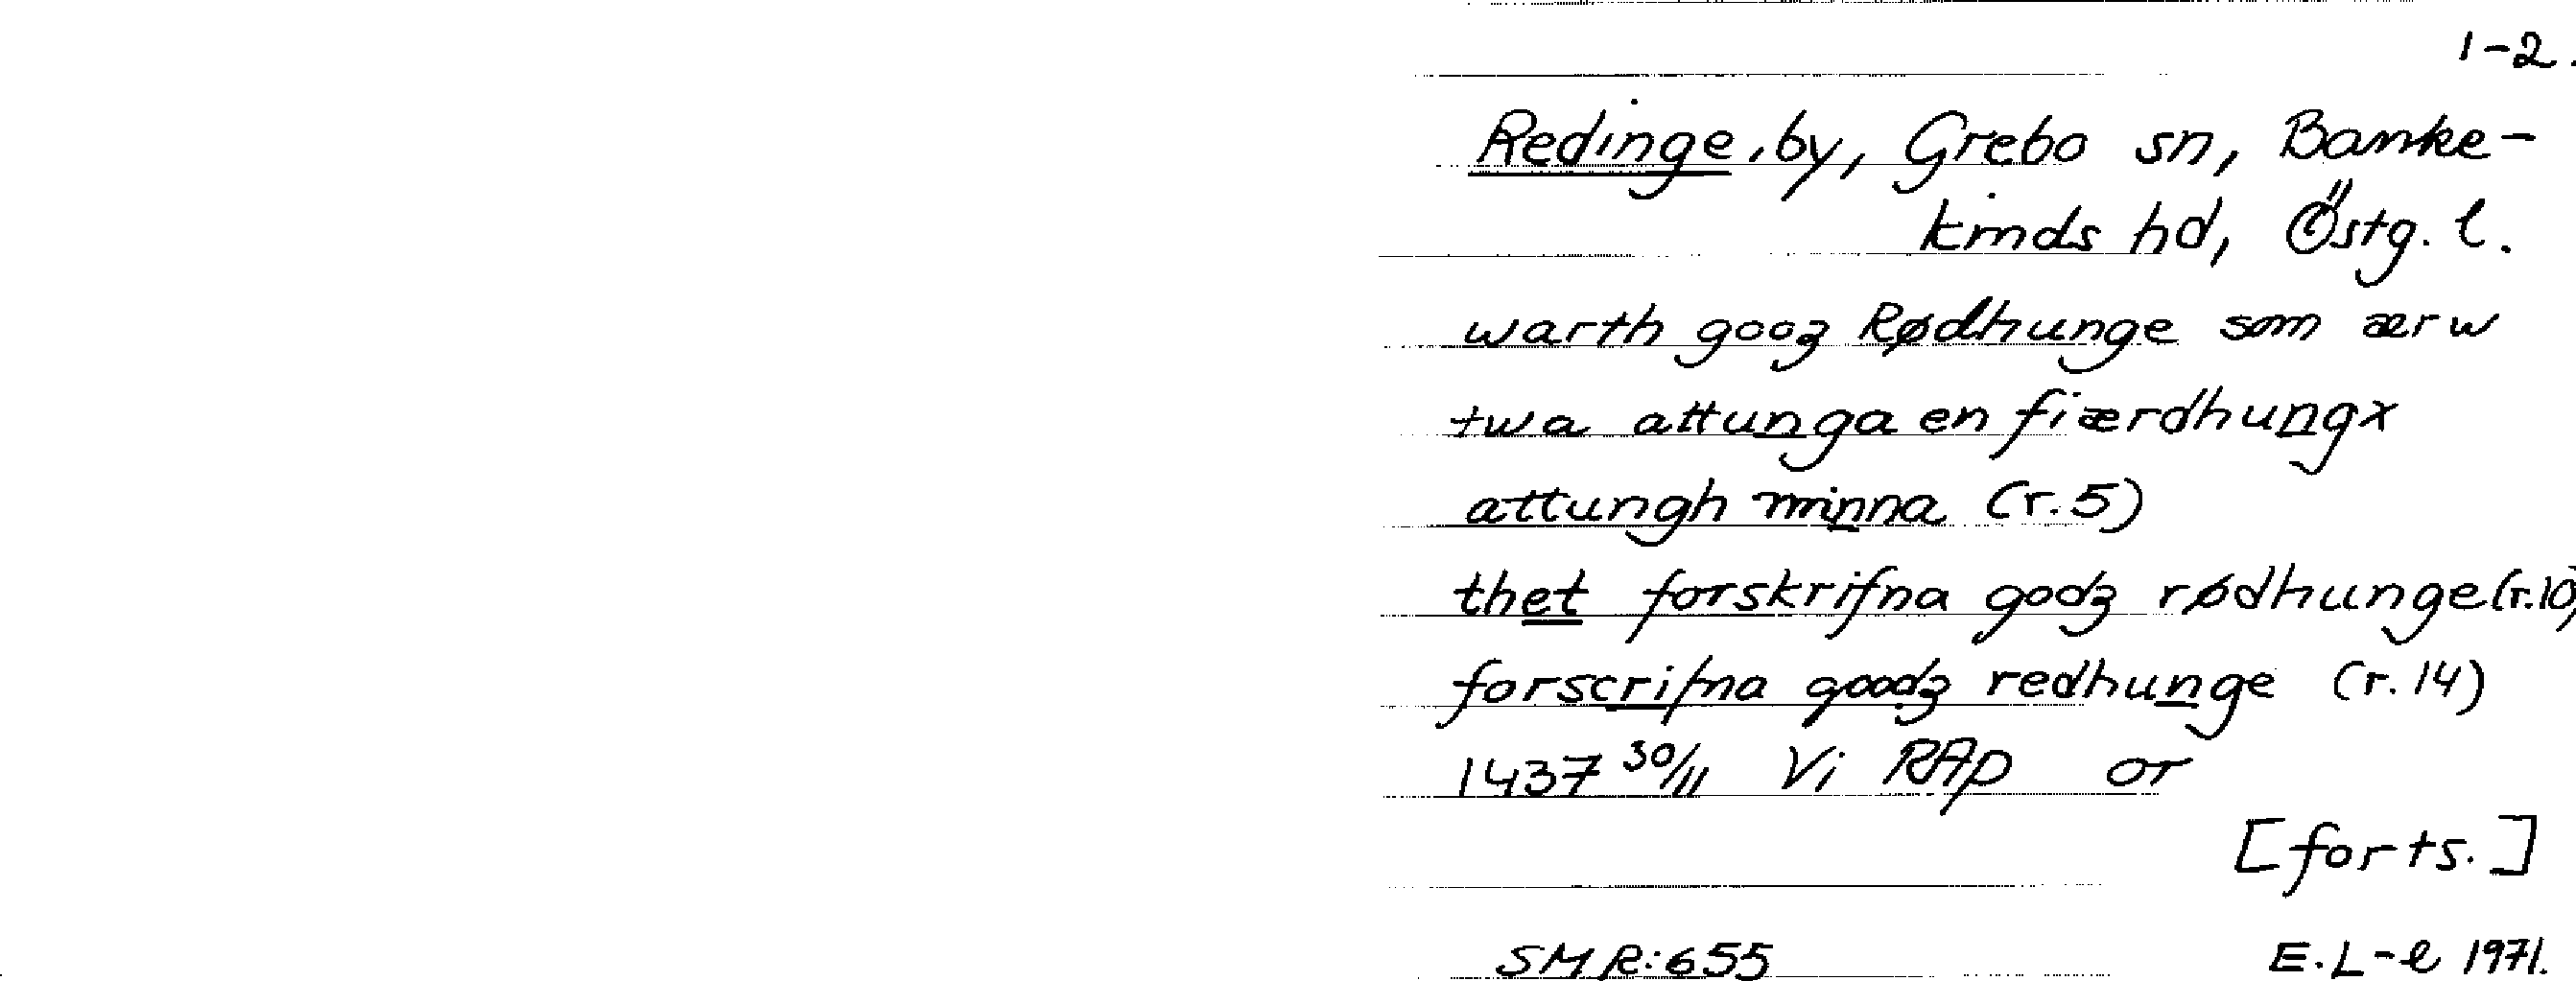 1-2.
Redinge, by, Grebo sn, Banke-
kinds hd, Östg. l.
warth gooʒ Rødhunge som ærw
twa attunga en fiærdhungx
attungh minna (r. 5)
thet forskrifna godʒ rødhunge (r. 10)
forscrifna goodʒ redhunge (r. 14)
1437 30/11 Vi RAp or
[forts.]
SMR: 655 E. L-e 1971.